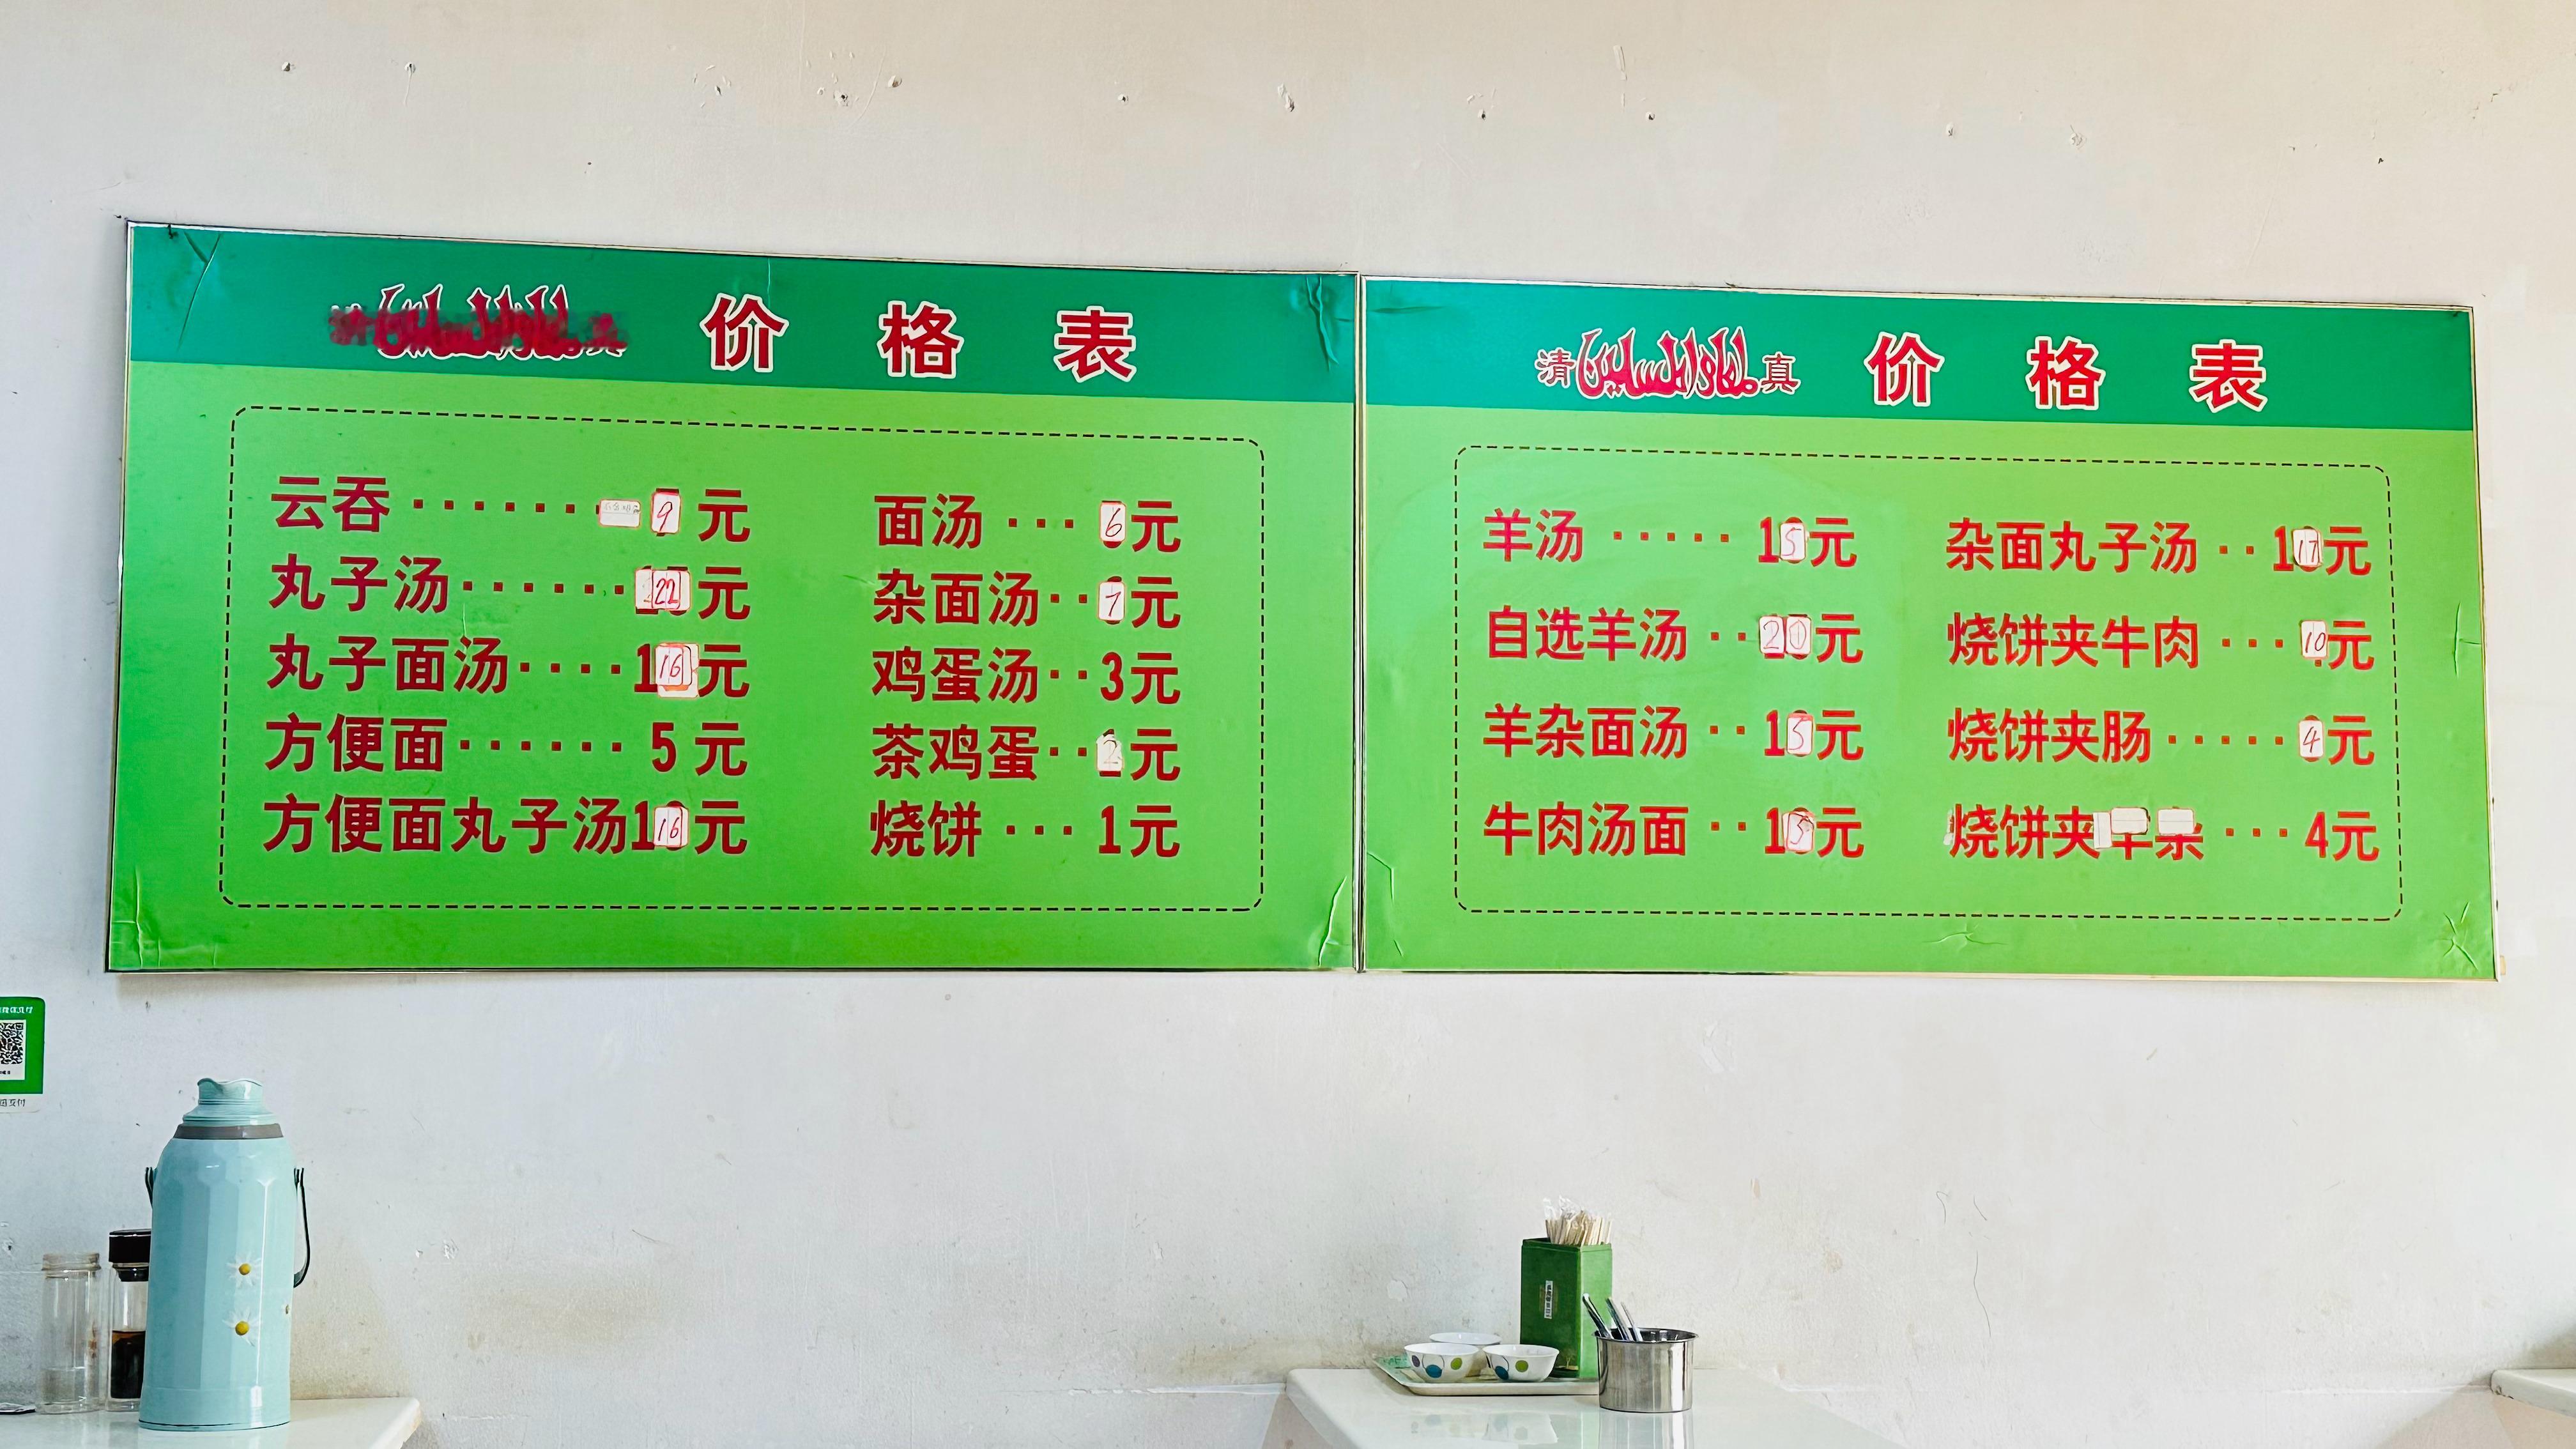 价格表
云吞······9元
丸子汤······22元
丸子面汤····16元
方便面······5元
方便面丸子汤16元
面汤···6元
杂面汤··7元
鸡蛋汤··3元
茶鸡蛋··2元
烧饼···1元
清真 价格表
羊汤·····15元
自选羊汤··20元
羊杂面汤··15元
牛肉汤面··15元
杂面丸子汤··17元
烧饼夹牛肉···10元
烧饼夹肠·····4元
烧饼夹···4元